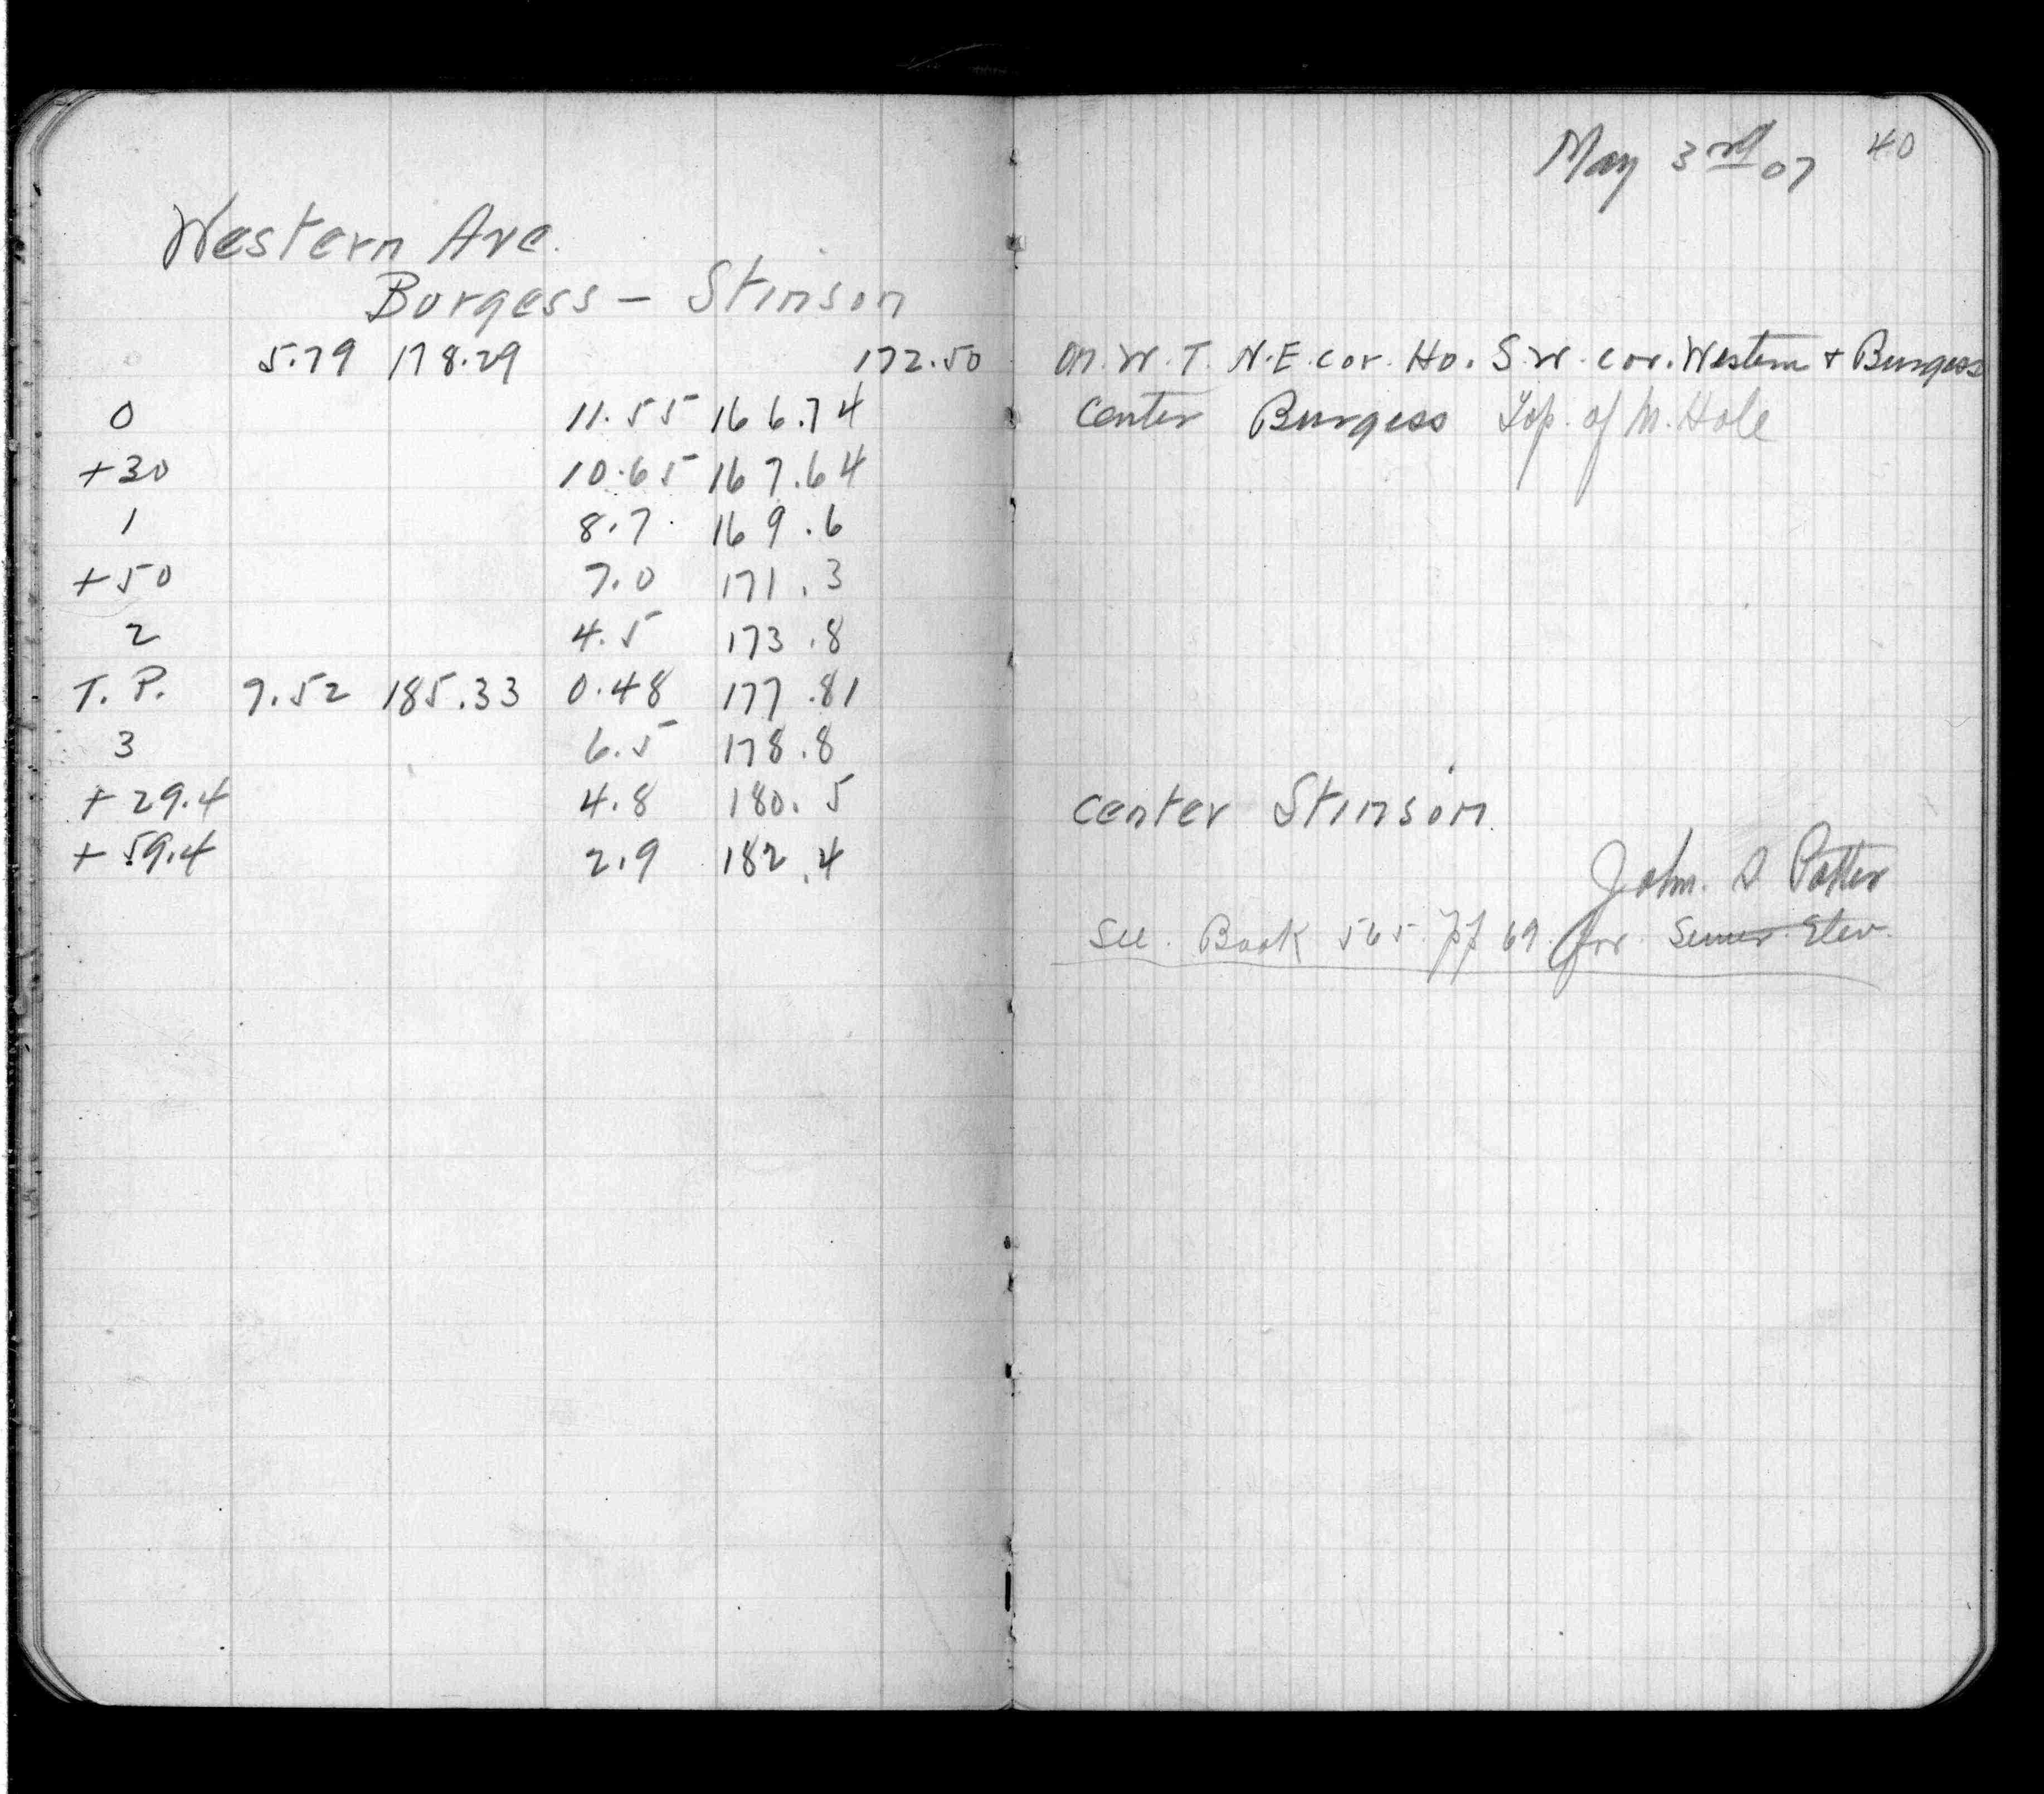 May 3rd 07 40
Western Ave.
Burgess - Stinson
5.79 178.29 172.50 on W.T. N.E. cor. Ho. S.W. cor. Western + Burgess
0 11.55 166.74 Center Burgess Top of M. Hole
+30 10.65 167.64
1 8.7 169.6
+50 7.0 171.3
2 4.5 173.8
T.P. 7.52 185.33 0.48 177.81
3 6.5 178.8
+29.4 4.8 180.5 Center Stinson.
+59.4 2.9 182.4
John. S Potter
See. Book 565. Pg 69. for Sewer Elev.